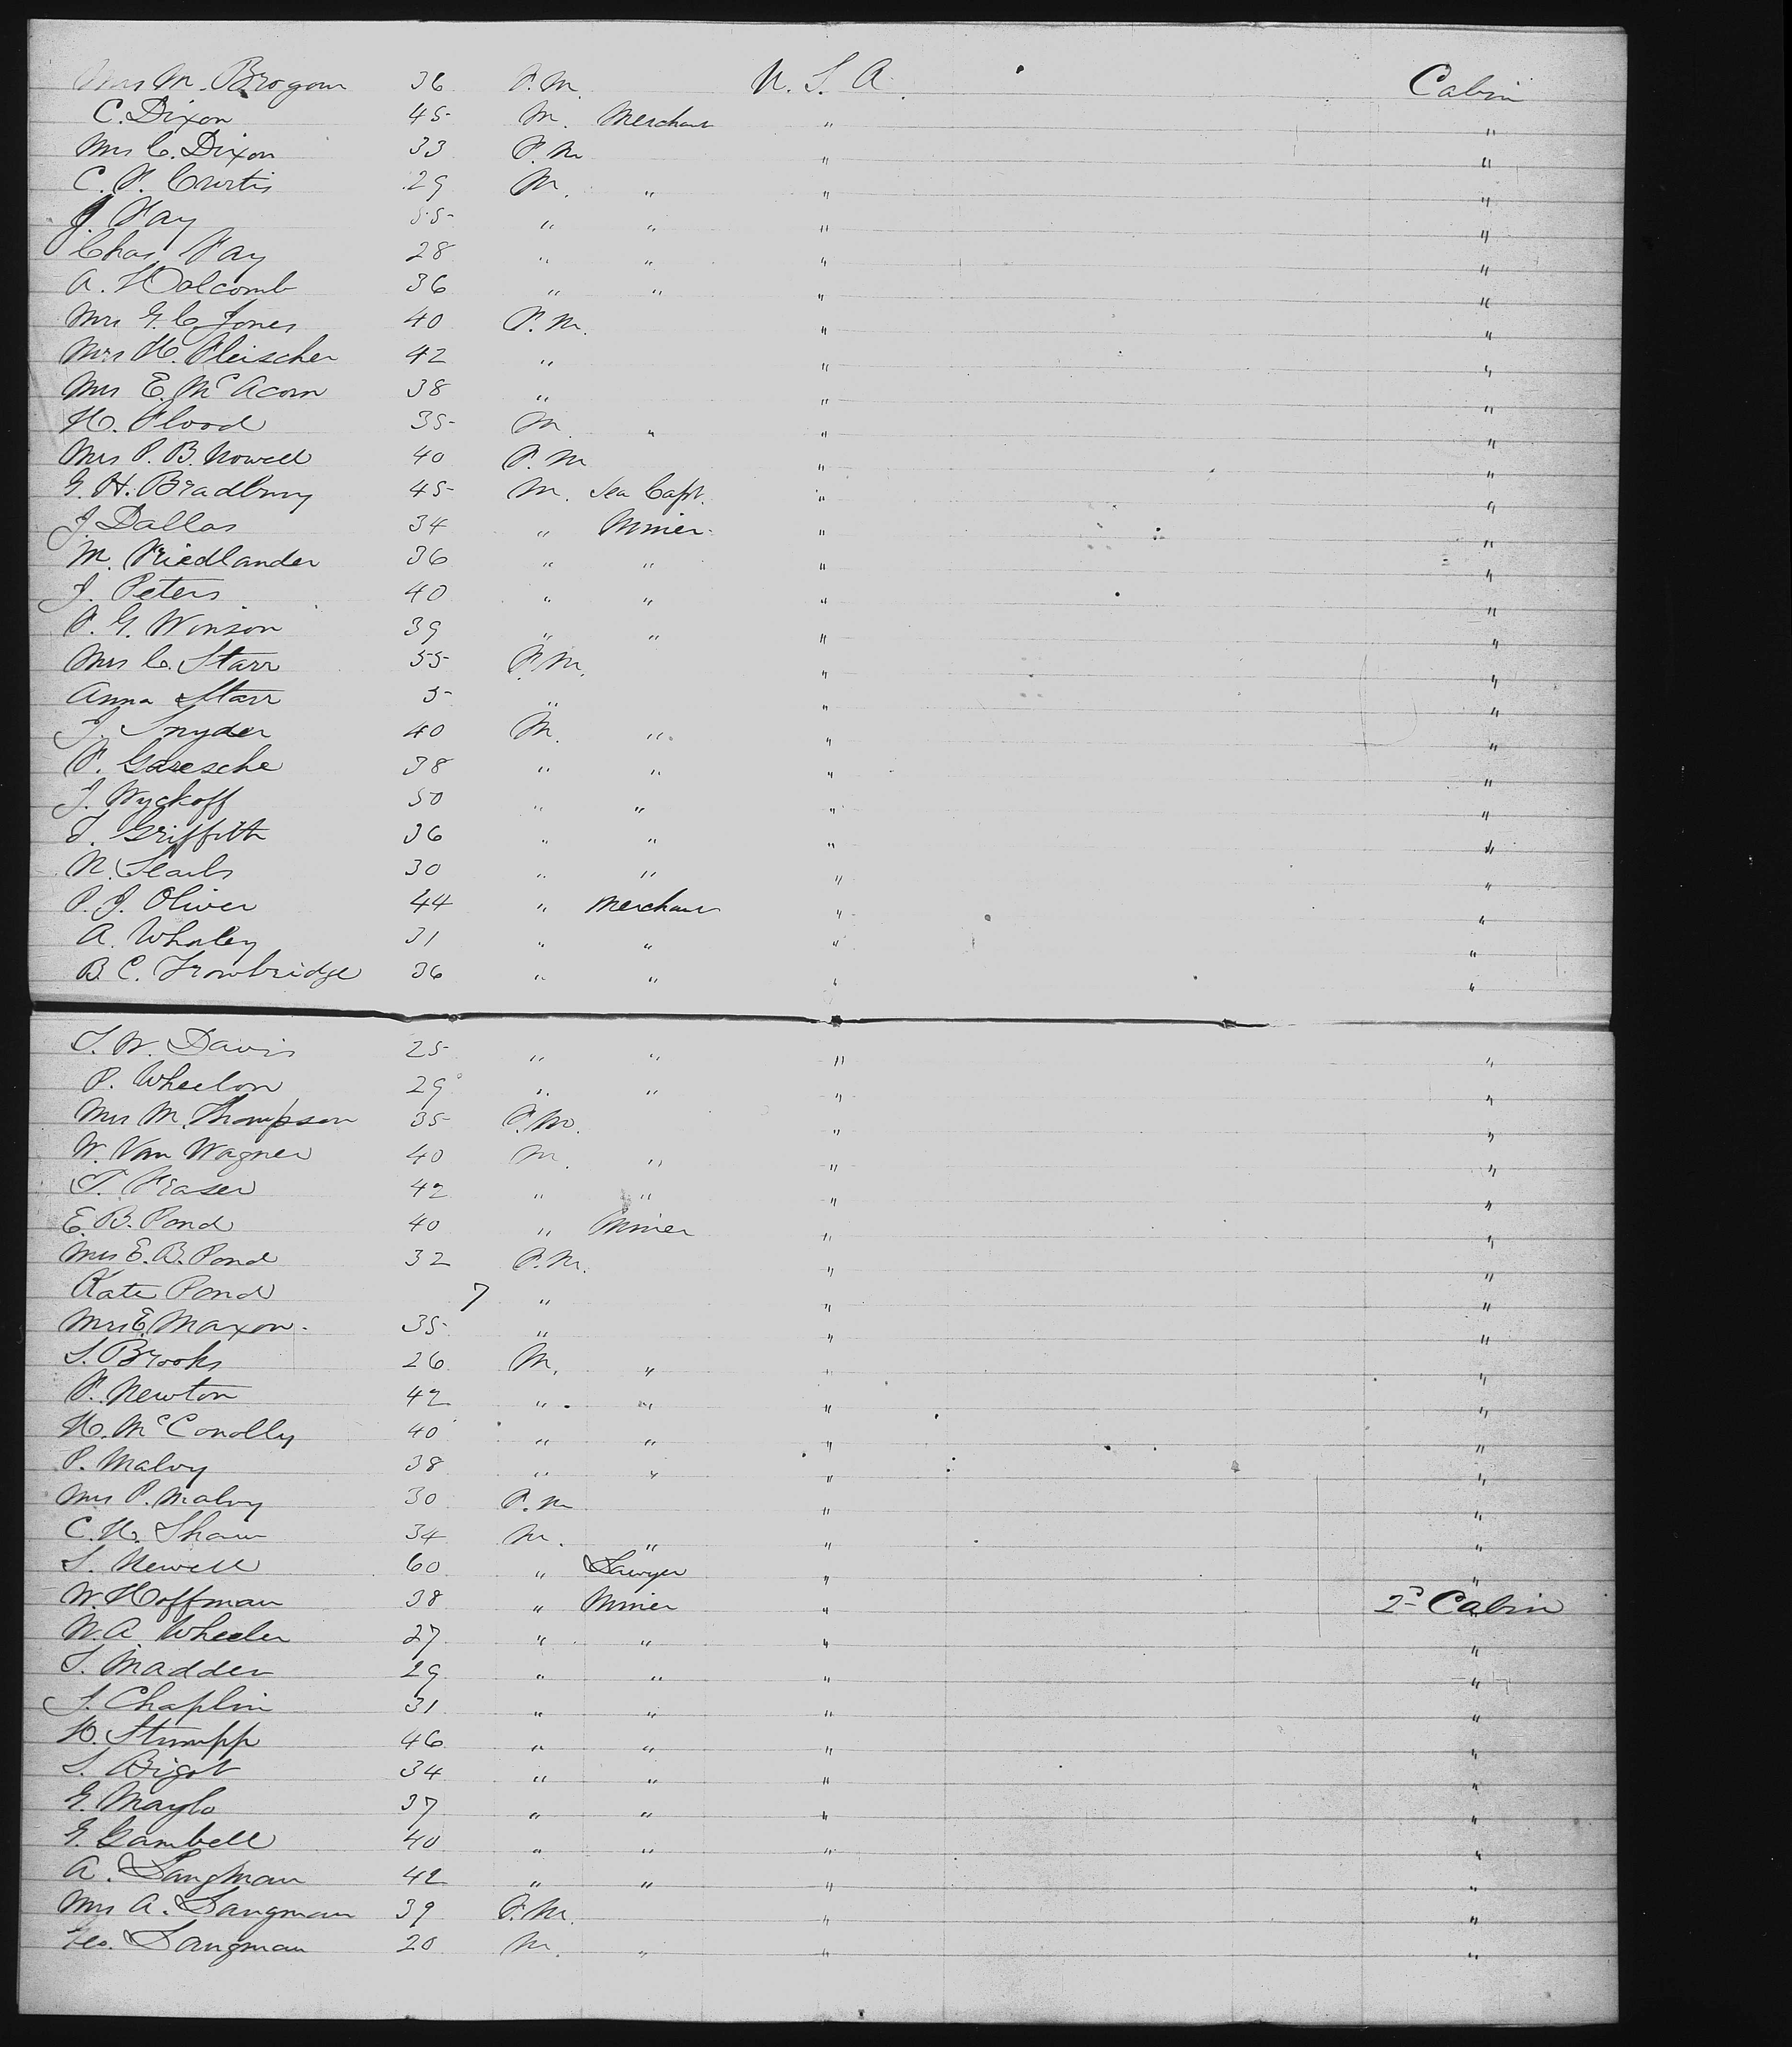 Mrs M. Brogan 36 F.M. U. S. A. Cabin
C. Dixon 45 M. Merchant " "
Mrs C. Dixon 33 F.M " "
C. F. Curtis 29 M. " " "
J. Fay 55 " " " "
Chas Fay 28 " " " "
A. Holcomb 36 " " " "
Mrs G. C. Jones 40 F.M. " "
Mrs H. Fleischer 42 " " "
Mrs E. McAcorn 38 " " "
H. Flood 35 M " " "
Mrs P. B. Nowell 40 F.M " "
G. H. Bradbury 45 M. Sea Capt. " "
J. Dallas 34 " Miner " "
M. Friedlander 36 " " " "
J. Peters 40 " " " "
F. G. Winson 39 " " " "
Mrs C. Starr 55 F.M. " "
Anna Starr 5 " " "
J. Snyder 40 M. " " "
F. Garesche 38 " " " "
J. Wyckoff 50 " " " "
T. Griffith 36 " " " "
N. Searls 30 " " " "
P. J. Oliver 44 " Merchant " "
A. Whaley 31 " " " "
B. C. Trowbridge 36 " " " "
T. W. Davis 25 " " " "
P. Wheelon 29 " " " "
Mrs M. Thompson 35 F.M. " "
W. Van Wagner 40 M. " " "
T. Fraser 42 " " " "
E. B. Pond 40 " Miner " "
Mrs E. B. Pond 32 F.M. " "
Kate Pond 7 " " "
Mrs E. Maxon 35 " " "
S. Brooks 26 M. " " "
F. Newton 42 " " " "
H. McConolly 40 " " " "
P. Malvy 38 " " " "
Mrs P. Malvy 30 F.M " "
C. H. Shaw 34 M. " " "
S. Newell 60 " Lawyer " "
W. Hoffman 38 " Miner " 2d Cabin
W. A. Wheeler 27 " " " "
S. Madden 29 " " " "
S. Chaplin 31 " " " "
H. Stumpp 46 " " " "
S. Bigot 34 " " " "
G. Maylo 37 " " " "
G. Gambell 40 " " " "
A. Langman 42 " " " "
Mrs A. Langman 39 F.M. " "
Geo. Langman 20 M. " " "